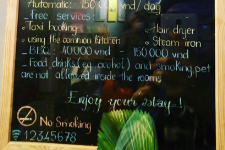 Automatic: 150.000 vnd / day
- Free services:
+ Taxi bookings + Hair dryer
+ using the common kitchen + Steam iron
- BBQ: 40.000 vnd - 150.000 vnd
- Food drinks (eg acohol) and smoking, pet
are not allowed inside the rooms
Enjoy your stay!
No Smoking
12345678